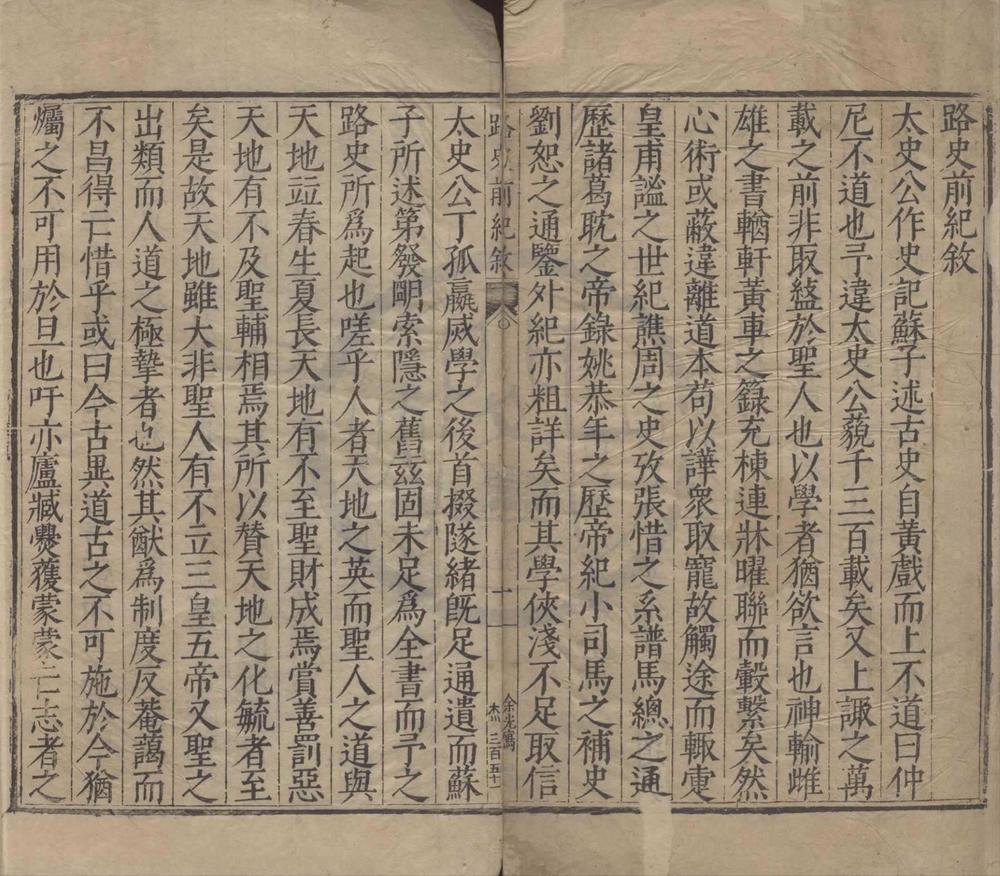 路史前紀敘
太史公作史記蘇子述古史自黃戲而上不道曰仲
尼不道也予違太史公藐千三百載矣又上諏之萬
載之前非取盭於聖人也以學者猶欲言也神輸雌
雄之書輶軒黃車之籙充棟連牀曜聯而轂繫矣然
心術或蔽違離道本苟以譁衆取寵故觸途而輒疐
皇甫謐之世紀譙周之史攷張愔之系譜馬總之通
歷諸葛耽之帝錄姚恭年之歷帝紀小司馬之補史
劉恕之通鑒外紀亦粗詳矣而其學俠淺不足取信
路史前紀敘
一
余光寫
杰 三百五十一
太史公丁孤嬴威學之後首掇隧緒旣足通遺而蘇
子所述第發朙索隱之舊玆固未足爲全書而予之
路史所爲起也嗟乎人者天地之英而聖人之道與
天地竝春生夏長天地有不至聖財成焉賞善罰惡
天地有不及聖輔相焉其所以贊天地之化毓者至
矣是故天地雖大非聖人有不立三皇五帝又聖之
出類而人道之極摯者也然其猷爲制度反菴藹而
不昌得亡惜乎或曰今古異道古之不可施於今猶
爥之不可用於旦也吁亦廬臧爨獲蒙蒙亡志者之